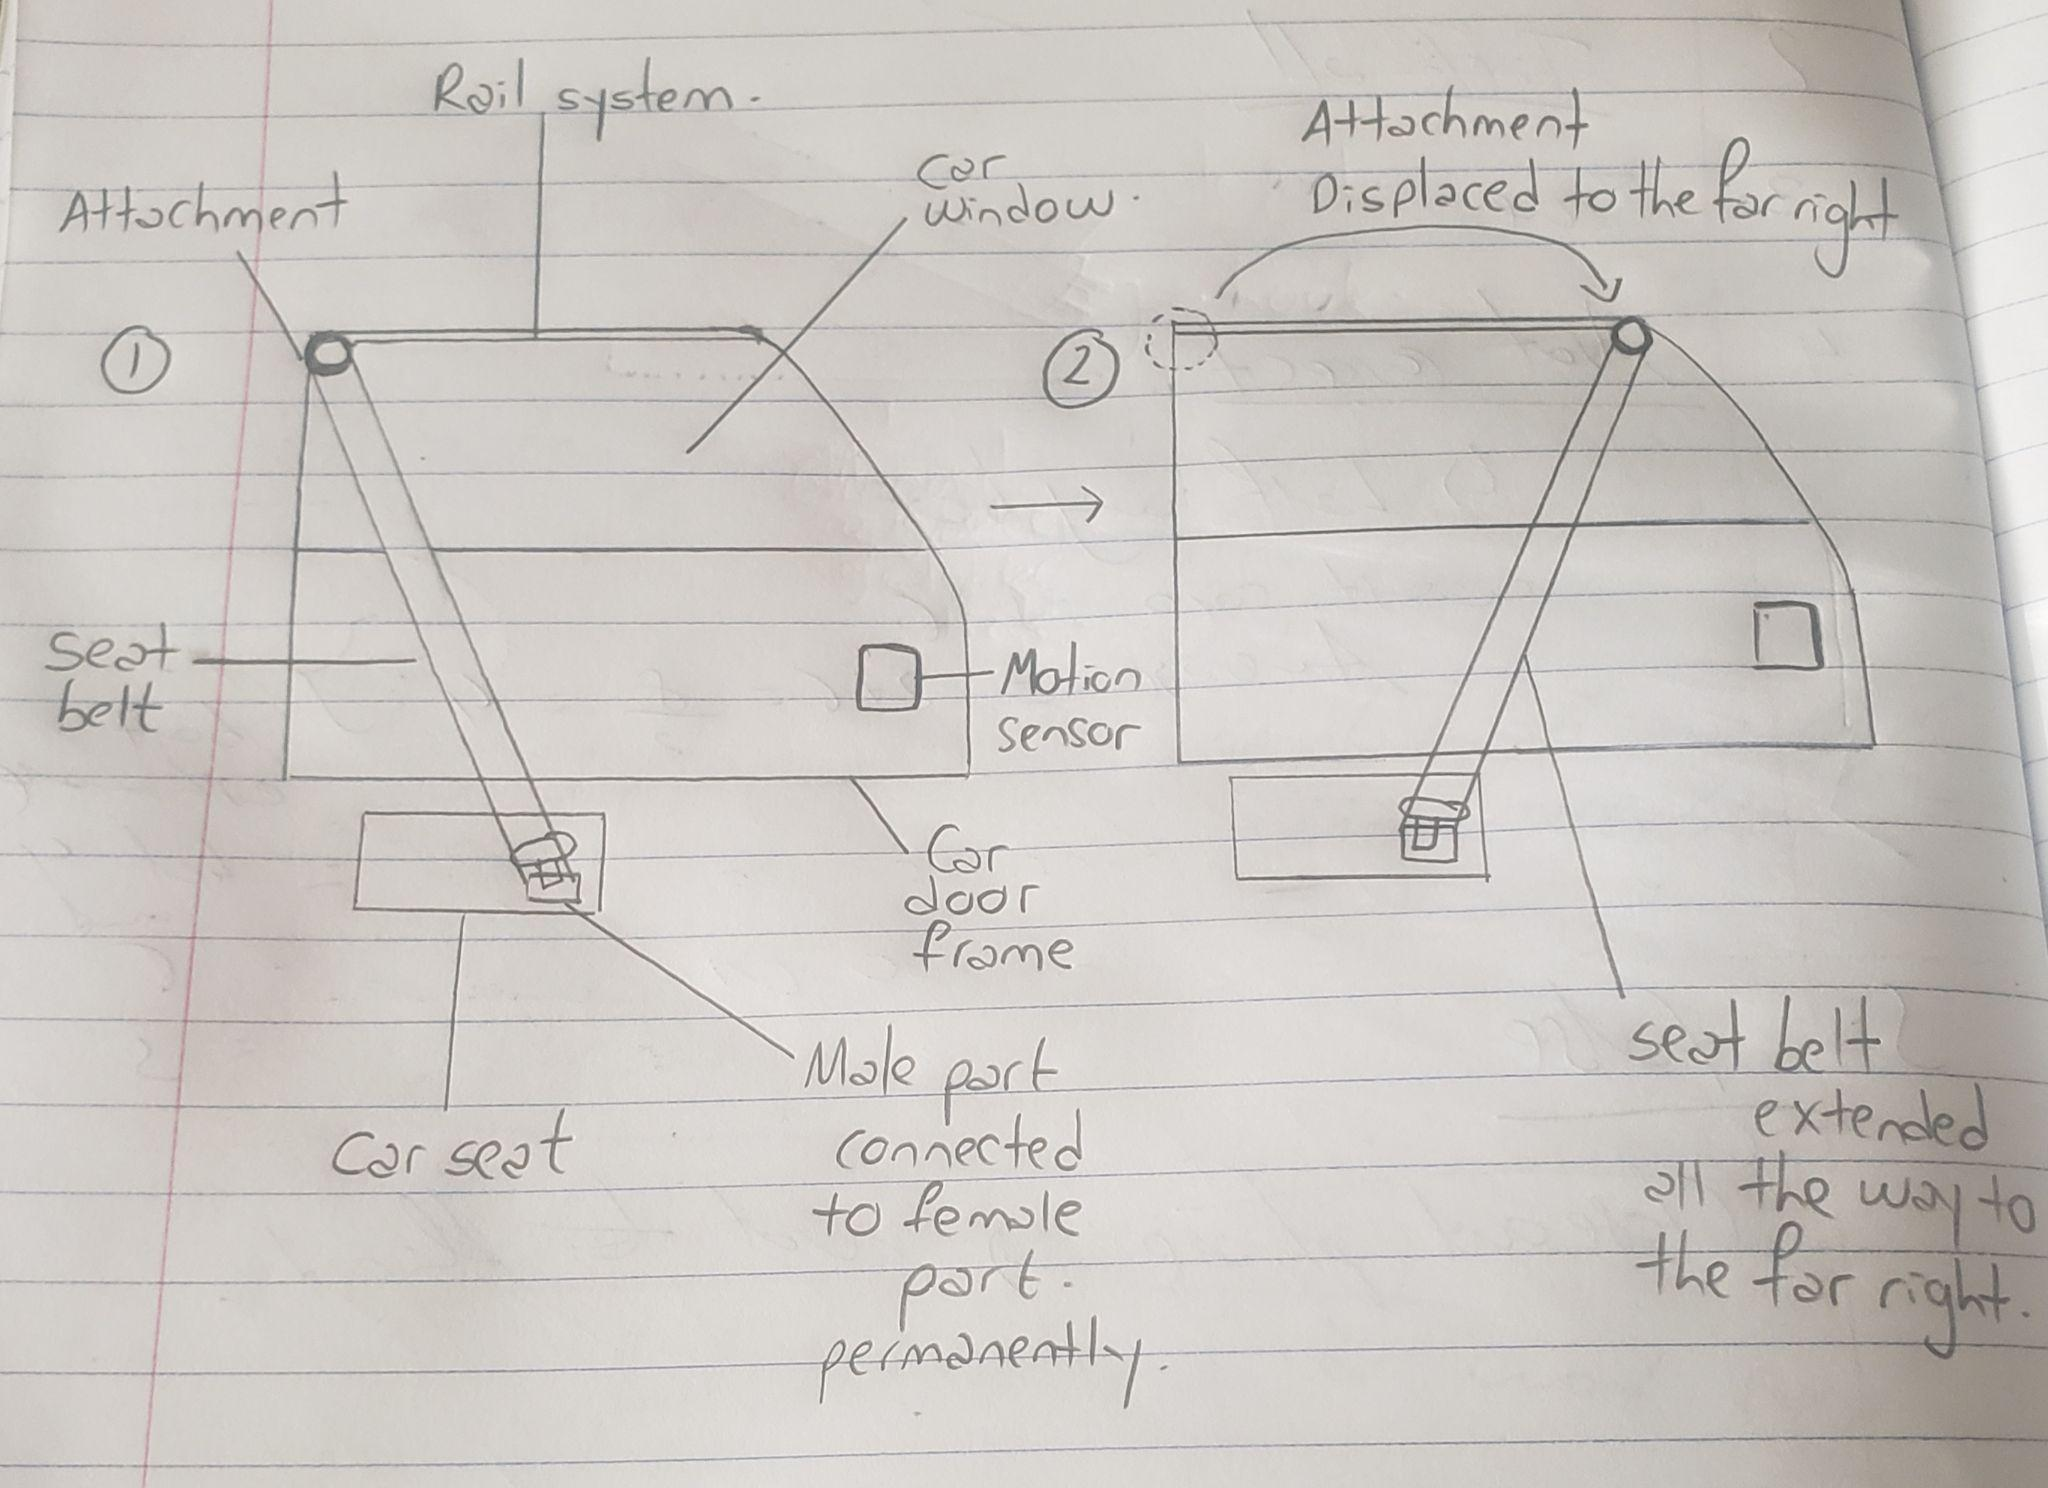 Rail system.
Attachment
car
window.
①
seat
belt
Motion
sensor
Car
door
frame
Car seat
Male part
connected
to female
part.
permanently.
Attachment
Displaced to the far right
②
seat belt
extended
all the way to
the far right.